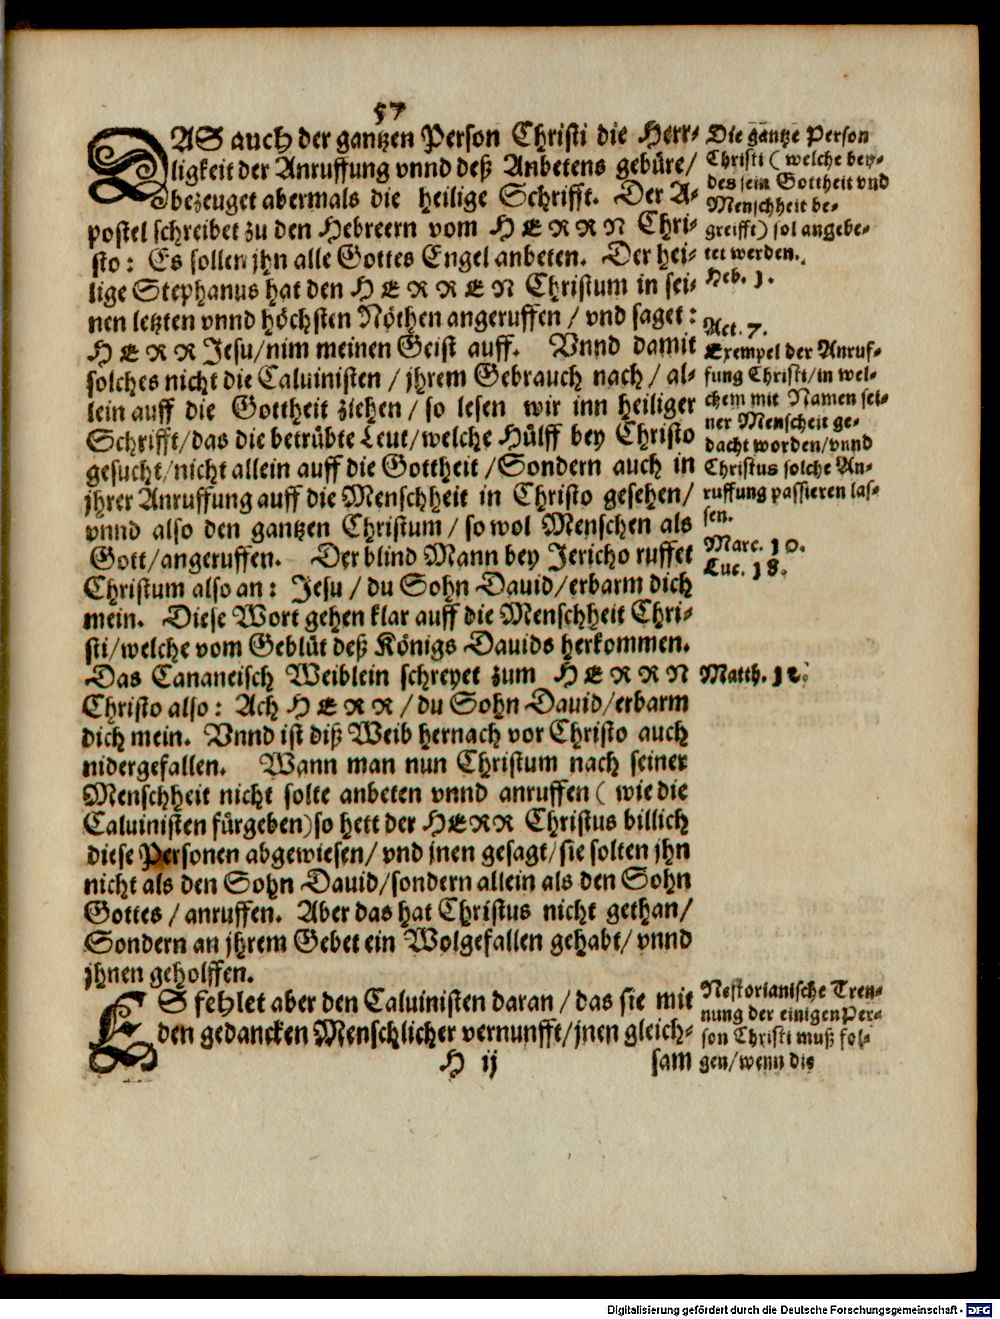 57
DAS auch der gantzen Person Christi die Herr-
ligkeit der Anruffung vnnd deß Anbetens gebüre/
bezeuget abermals die heilige Schrifft. Der A-
postel schreibet zu den Hebreern vom HERRN Chri-
sto: Es sollen jhn alle Gottes Engel anbeten. Der hei-
lige Stephanus hat den HERREN Christum in sei-
nen letzten vnnd höchsten Nöthen angeruffen / vnd saget:
HERR Jesu/nim meinen Geist auff. Vnnd damit
solches nicht die Caluinisten / jhrem Gebrauch nach / al-
lein auff die Gottheit ziehen / so lesen wir inn heiliger
Schrifft/das die betrübte Leut/welche Hülff bey Christo
gesucht/nicht allein auff die Gottheit /Sondern auch in
jhrer Anruffung auff die Menschheit in Christo gesehen/
vnnd also den gantzen Christum / so wol Menschen als
Gott/angeruffen. Der blind Mann bey Jericho ruffet
Christum also an: Jesu / du Sohn Dauid/erbarm dich
mein. Diese Wort gehen klar auff die Menschheit Chri-
sti/welche vom Geblüt deß Königs Dauids herkommen.
Das Cananeisch Weiblein schreyet zum HERRN
Christo also: Ach HERR / du Sohn Dauid/erbarm
dich mein. Vnnd ist diß Weib hernach vor Christo auch
nidergefallen. Wann man nun Christum nach seiner
Menschheit nicht solte anbeten vnnd anruffen ( wie die
Caluinisten fürgeben) so hett der HERR Christus billich
diese Personen abgewiesen/ vnd jnen gesagt/ sie solten jhn
nicht als den Sohn Dauid/sondern allein als den Sohn
Gottes / anruffen. Aber das hat Christus nicht gethan/
Sondern an jhrem Gebet ein Wolgefallen gehabt/ vnnd
jhnen geholffen.
ES fehlet aber den Caluinisten daran / das sie mit
den gedancken Menschlicher vernunfft/jnen gleich-
H ij
sam
Die gantze Person
Christi ( welche bey-
des sein Gottheit vnd
Menschheit be-
greifft) sol angebe-
tet werden.
Heb. 1.
Act. 7.
Exempel der Anruf-
fung Christi/in wel-
chem mit Namen sei-
ner Menscheit ge-
dacht worden/vnnd
Christus solche An-
ruffung passieren las-
sen.
Marc. 10.
Luc. 18.
Matth.
Nestorianische Tren-
nung der einigen Per-
son Christi muß fol-
gen/wenn die
Digitalisierung gefördert durch die Deutsche Forschungsgemeinschaft - DFG